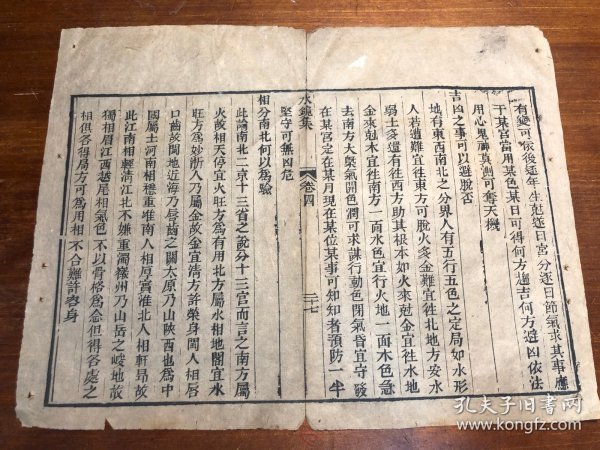 有變可依後逐年生剋逐日宮分逐日節氣求其事應
于某宮當用某色某日可得何方趨吉何方避凶依法
用心鬼神莫測可奪天機
吉凶之事可以避脫否
地有東西南北之分界人有五行五色之定局如水形
人若遭難宜往東方可脫火多金難宜往北地方妥水
弱土多還有往西方助其根本如火來尅金宜往水地
金來尅木宜往南方一面水色宜行火地一面木色急
去南方大槩氣開色潤可求謀行動色閉氣昏宜守發
在某宮定在某月現在某位某事可知知者預防一半
堅守可無凶危
水鏡集
卷四
三十七
相分南北何以為驗
此論南北二京十三省之說分十三官而言之南方屬
火故相天停宜火旺方為有用北方屬水相地閣宜水
旺方為妙浙人乃屬金故金宜清方許榮身閩人相唇
口齒故閩地近海乃唇齒之關太原乃山陝西也為中
國屬土河南相穩重堆南人相厚實淮北人相軒昂故
此江南相輕清江北不嫌重濁徽州乃山岳之峻地故
獨相眉江西越尾相氣色不以骨格為念但得各處之
相但各得局方可為用相不合難許春身
孔夫子旧书网
www.kongfz.com